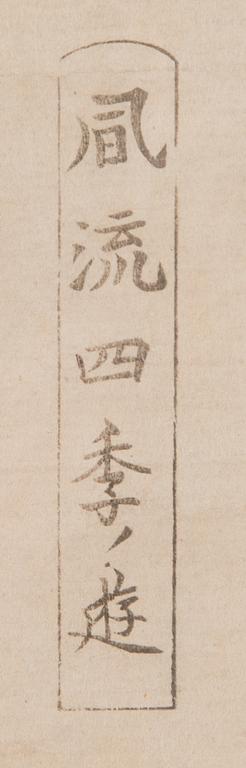 風流四季ノ遊